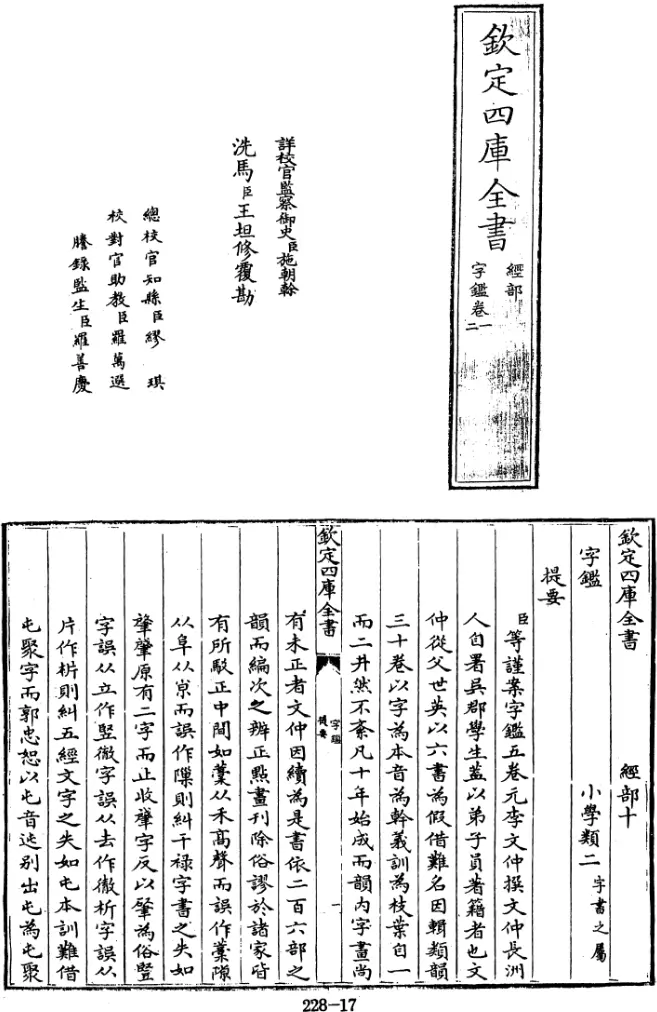 欽定四庫全書
經部
字鑑卷一二
詳校官監察御史臣施朝幹
洗馬臣王坦修覆勘
總校官知縣臣繆琪
校對官助教臣羅萬選
謄錄監生臣羅善慶
欽定四庫全書 經部十
字鑑 小學類二 字書之屬
提要
臣等謹案字鑑五卷元李文仲撰文仲長洲
人自署吳郡學生蓋以弟子員著籍者也文
仲從父世英以六書為假借難名因輯類韻
三十卷以字為本音為幹義訓為枝葉自一
而二井然不紊凡十年始成而韻內字畫尚
欽定四庫全書 字鑑 提要 一
有未正者文仲因續為是書依二百六部之
韻而編次之辨正點畫刊除俗謬於諸家皆
有所駁正中間如稾从禾高聲而誤作藁隙
从阜从𡭴而誤作隟則糾干祿字書之失如
肇肈原有二字而止收肇字反以肈為俗豎
字誤从立作竪徹字誤从去作㣲析字誤从
片作㭊則糾五經文字之失如屯本訓難借
屯聚字而郭忠恕以屯音迍別出𡳞為屯聚
228-17